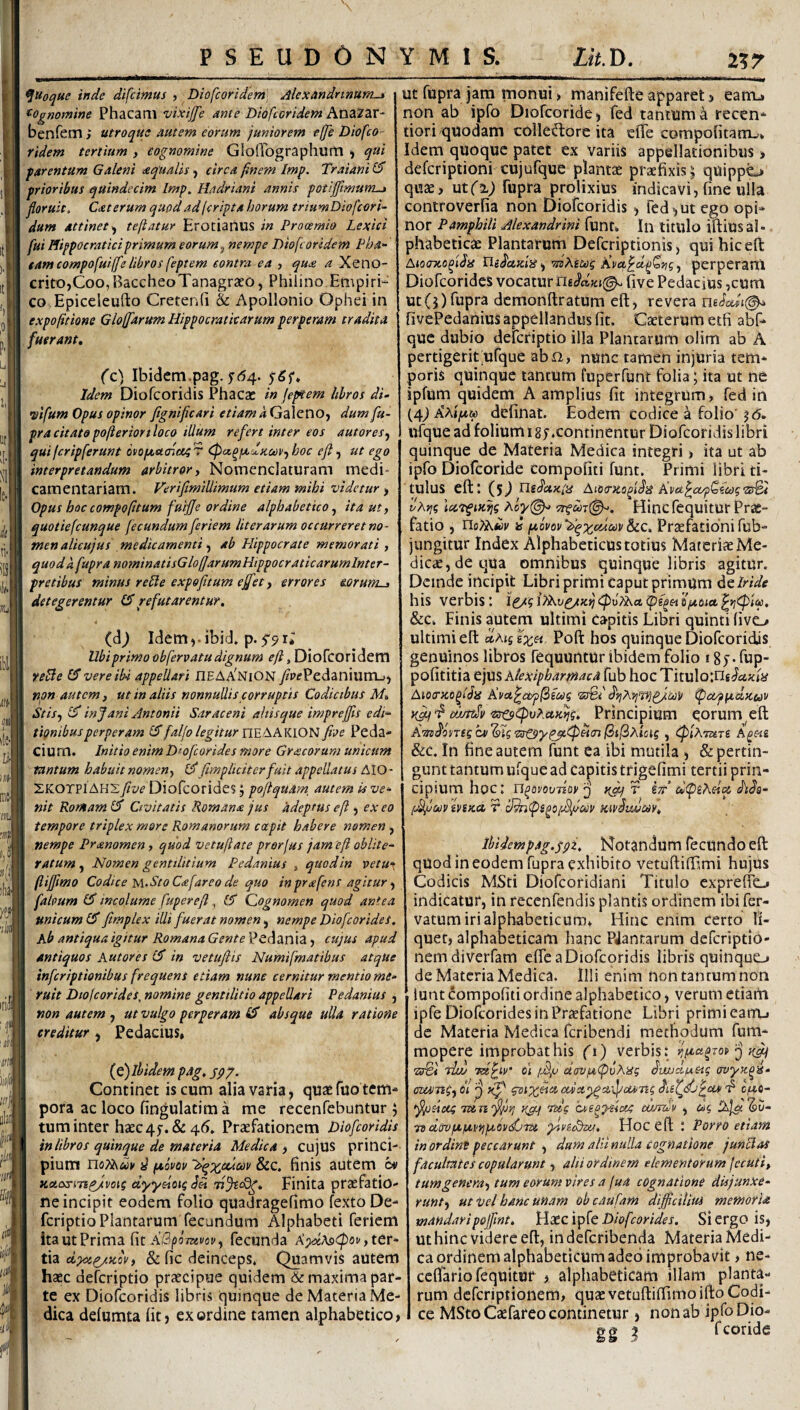 PSEUDÓNYMIS. Lit.D. 237
quoque inde discimus , Dioscoridem Alexandrinum
cognomine Phacam vixisse ante Dioscoridem Anazar-
bensem ; utroque autem eorum juniorem esse Diosco
ridem tertium , cognomine Glossographum , qui
parentum Galeni æqualis , circa finem Imp. Traiani &
prioribus quindecim Imp. Hadriani annis potissimum
floruit. Cæterum quod ad scripta horum trium Dioscori-
dum attinet, testatur Erotianus in Proœmio Lexici
sui Hippocratici primum eorum, nempe Dioscoridem Pha-
cam composuisse libros septem contra ea , quæ a Xeno-
crito,Coo, Baccheo Tanagræo, Philino Empiri-
co Epiceleusto Cretensi & Apollonio Ophei in
expositione Glossarum Hippocraticarum perperam tradita
fuerant.
(c) Ibidem.pag. 564. 565.
Idem Dioscoridis Phacæ in septem libros di-
visum Opus opinor significari etiam à Galeno, dum su-
pra citato posteriori loco illum refert inter eos autores,
qui scripserunt ὀνομασίας τ̃ φαρμάκων, hoc est, ut ego
interpretandum arbitror, Nomenclaturam medi-
camentariam. Verisimillimum etiam mihi videtur ,
Opus hoc compositum fuisse ordine alphabetico, ita ut,
quotiescunque secundum seriem literarum occurreret no-
men alicujus medicamenti , ab Hippocrate memorati ,
quod à supra nominatis Glossarum Hippocraticarum Inter-
pretibus minus recte expositum esset, errores eorum
detegerentur & refutarentur.
(d) Idem, ibid. p. 591.
Ubi primo observatu dignum est, Dioscoridem
recte & vere ibi appellari ΠΕΔΑΝΙΟΝ sive Pedanium,
non autem, ut in aliis nonnullis corruptis Codicibus M.
Stis, & in Jani Antonii Saraceni aliisque impressis edi-
tionibus perperam & falso legitur ΠΕΔΑΚΙΟΝ sive Peda-
cium. Initio enim Dioscorides more Græcorum unicum
tantum habuit nomen, & simpliciter fuit appellatus ΔΙΟ-
ΣΚΟΡΙΔΗΣ sive Dioscorides ; postquam autem is ve-
nit Romam & Civitatis Romanæ jus adeptus est , ex eo
tempore triplex more Romanorum cœpit habere nomen ,
nempe Prænomen , quod vetustate prorsus jam est oblite-
ratum , Nomen gentilitium Pedanius , quod in vetu-
stissimo Codice M.Sto Cæsareo de quo in præsens agitur,
salvum & incolume superest , & Cognomen quod antea
unicum & simplex illi fuerat nomen, nempe Dioscorides.
Ab antiqua igitur Romana Gente Pedania, cujus apud
antiquos Autores & in vetustis Numismatibus atque
inscriptionibus frequens etiam nunc cernitur mentio me-
ruit Dioscorides nomine gentilitio appellari Pedanius ,
non autem , ut vulgo perperam & absque ulla ratione
creditur , Pedacius.
(e) Ibidem pag. 597.
Continet is cum alia varia , quæ suo tem-
pora ac loco singulatim à me recensebuntur ;
tum inter hæc 45. & 46. Præfationem Dioscoridis
in libros quinque de materia Medica , cujus princi-
pium Πολλῶν ȣ μόνον ἀρχαίων &c. finis autem ἐν
κασσιτερίνοις ἀγγείοις δεῖ τίθεσθ. Finita præfatio-
ne incipit eodem folio quadragesimo sexto De-
scriptio Plantarum secundum Alphabeti seriem
ita ut Prima sit Ἀβρότανον, secunda Ἀγάλοφον, ter-
tia ἀγαρικόν, & sic deinceps. Quamvis autem
hæc descriptio præcipue quidem & maxima par-
te ex Dioscoridis libris quinque de Materia Me-
dica desumta sit, ex ordine tamen alphabetico,
ut supra jam monui , manifeste apparet , eam
non ab ipso Dioscoride, sed tantum à recen-
tiori quodam collectore ita esse compositam.
Idem quoque patet ex variis appellationibus ,
descriptioni cujusque plantæ præfixis ; quippe
quæ, ut (2) supra prolixius indicavi, sine ulla
controversia non Dioscoridis , sed, ut ego opi-
nor Pamphili Alexandrini sunt. In titulo istius al-
phabeticæ Plantarum Descriptionis, qui hic est
Διοσκορίδȣ Πεδακίȣ, πόλεως Ἀναζάρβης, perperam
Dioscorides vocatur Πεδάκιος sive Pedacius ,cum
ut (3) supra demonstratum est, revera Πεδάνιος
sive Pedanius appellandus sit. Cæterum etsi abs-
que dubio descriptio illa Plantarum olim ab A
pertigerit usque ab Ω, nunc tamen injuria tem-
poris quinque tantum supersunt folia ; ita ut ne
ipsum quidem A amplius sit integrum, sed in
(4) Ἄλιμῳ desinat. Eodem codice à folio 36.
usque ad folium 185.continentur Dioscoridis libri
quinque de Materia Medica integri , ita ut ab
ipso Dioscoride compositi sunt. Primi libri ti-
tulus est: (5) Πεδακίȣ Διοσκορίδȣ Ἀναζαρβέως περὶ
ὕλης ἰατρικῆς λόγος πρῶτος. Hinc sequitur Præ-
fatio , Πολλῶν ȣ μόνον ἀρχαίων &c. Præfationi sub-
jungitur Index Alphabeticus totius Materiæ Me-
dicæ, de qua omnibus quinque libris agitur.
Deinde incipit Libri primi caput primum de Iride
his verbis: ἶρις ἰλλυρικὴ φύλλα φέρει ὅμοια ξηφίῳ.
&c. Finis autem ultimi capitis Libri quinti sive
ultimi est ἅλις ἔχει. Post hos quinque Dioscoridis
genuinos libros sequuntur ibidem folio 185. sup-
posititia ejus Alexipharmaca sub hoc Titulo:Πεδακίȣ
Διοσκορίδȣ Ἀναζαρβέως περὶ δηλητηρίων φαρμάκων
καὶ τ̃ αὐτῶν προφυλακῆς. Principium eorum est
Ἀποδόντες ἐν τοῖς προγραφεῖσι βιβλίοις , φίλτατε Ἀρειε
&c. In fine autem sunt ea ibi mutila , & pertin-
gunt tantum usque ad capitis trigesimi tertii prin-
cipium hoc: Προνουτίον ἢ καὶ τ̃ ἐπ' ὠφελείᾳ διδο-
μένων ἕνεκα τ̃ ἐπιφερομένων κινδύνων.
Ibidem pag. 592. Notandum secundo est
quod in eodem supra exhibito vetustissimi hujus
Codicis MSti Dioscoridiani Titulo expresse
indicatur, in recensendis plantis ordinem ibi ser-
vatum iri alphabeticum. Hinc enim certo li-
quet, alphabeticam hanc Plantarum descriptio-
nem diversam esse a Dioscoridis libris quinque
de Materia Medica. Illi enim non tantum non
sunt compositi ordine alphabetico, verum etiam
ipse Dioscorides in Præfatione Libri primi eam
de Materia Medica scribendi methodum sum-
mopere improbat his (1) verbis: ἥμαρτον ἢ καὶ
περὶ τὴν τάξιν· οἱ μὲν ἀσυμφύλȣς δυνάμεις συγκρȣ-
σαντες, οἱ ἢ κατὰ στοιχεῖα ἀναγράψαντες διέζευξαν τ̃ ὁμο-
γένειας τά τε γένη καὶ τὰς ἐνεργείας αὐτῶν , ὡς διὰ τοῦ-
το ἀσυμμνημόνευτα γίνεσθαι. Hoc est : Porro etiam
in ordine peccarunt , dum alii nulla cognatione junctas
facultates copularunt , alii ordinem elementorum secuti,
tum genera, tum eorum vires a sua cognatione disjunxe-
runt, ut vel hanc unam ob causam difficilius memoriæ
mandari possint. Hæc ipse Dioscorides. Si ergo is,
ut hinc videre est, in describenda Materia Medi-
ca ordinem alphabeticum adeo improbavit , ne-
cessario sequitur , alphabeticam illam planta-
rum descriptionem, quæ vetustissimo isto Codi-
ce MSto Cæsareo continetur , non ab ipso Dio-
gg 3 scoride